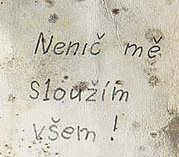 Nenič mě
Sloužím
všem !